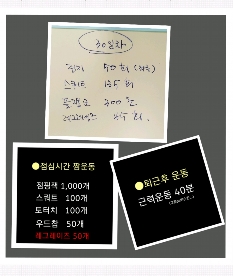 30일차
50회
스쿼트 135회
플랭크 300초
●점심시간 짬운동
점핑잭 1,000개
스쿼트 100개
토터치 100개
우드찹 50개
레그레이즈 50개
●퇴근후 운동
근력운동 40분